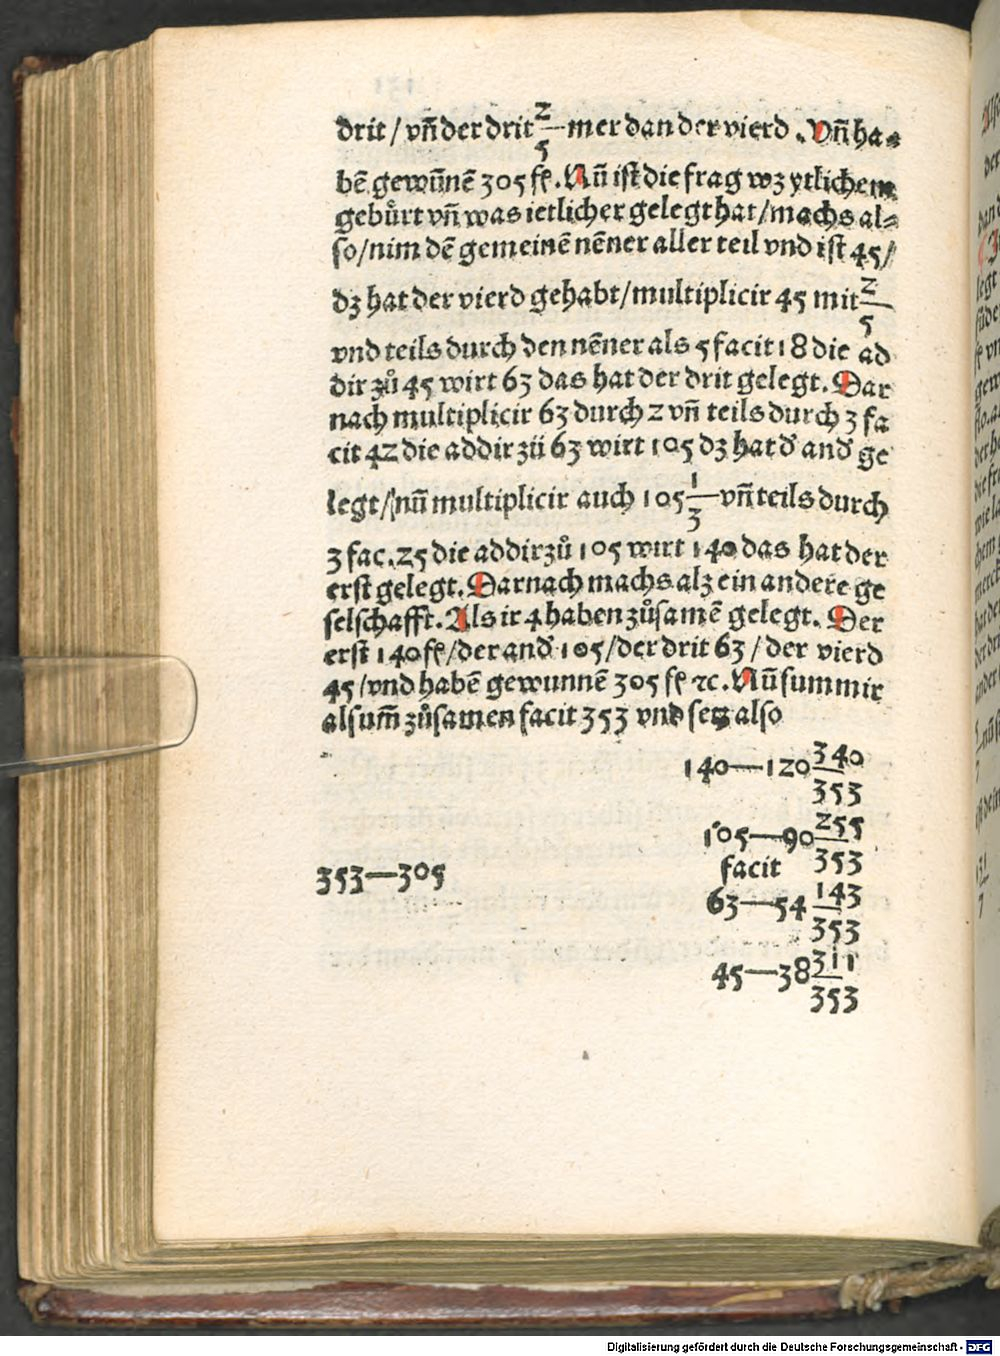 drit / vn̄ der drit 2/5 mer dan der vierd . Vn̄ ha⸗
bē gewūnē 305 fl. Nū ist die frag wz ytlichem
gebürt vn̄ was ietlicher gelegt hat / machs al⸗
so / nim dē gemeinē nēner aller teil vnd ist 45 /
dz hat der vierd gehabt / multiplicir 45 mit 2/5
vnd teils durch den nēner als 5 facit 18 die ad
dir zů 45 wirt 63 das hat der drit gelegt. Dar
nach multiplicir 63 durch 2 vn̄ teils durch 3 fa
cit 42 die addir zü 63 wirt 105 dz hat d' and' ge
legt / nū multiplicir auch 105 1/3 vn̄ teils durch
3 fac. 25 die addir zů 105 wirt 140 das hat der
erst gelegt. Darnach machs alz ein andere ge
selschafft. Als ir 4 haben zůsamē gelegt. Der
erst 140 fl / der and' 105 / der drit 63 / der vierd
45 / vnd habē gewunnē 305 fl ꝛc. Nū summir
als um̄ zůsamen facit 353 vnd setz also
140—120 340/353
105—90 255/353
353—305 facit
63—54 143/353
45—38 311/353
Digitalisierung gefördert durch die Deutsche Forschungsgemeinschaft - DFG